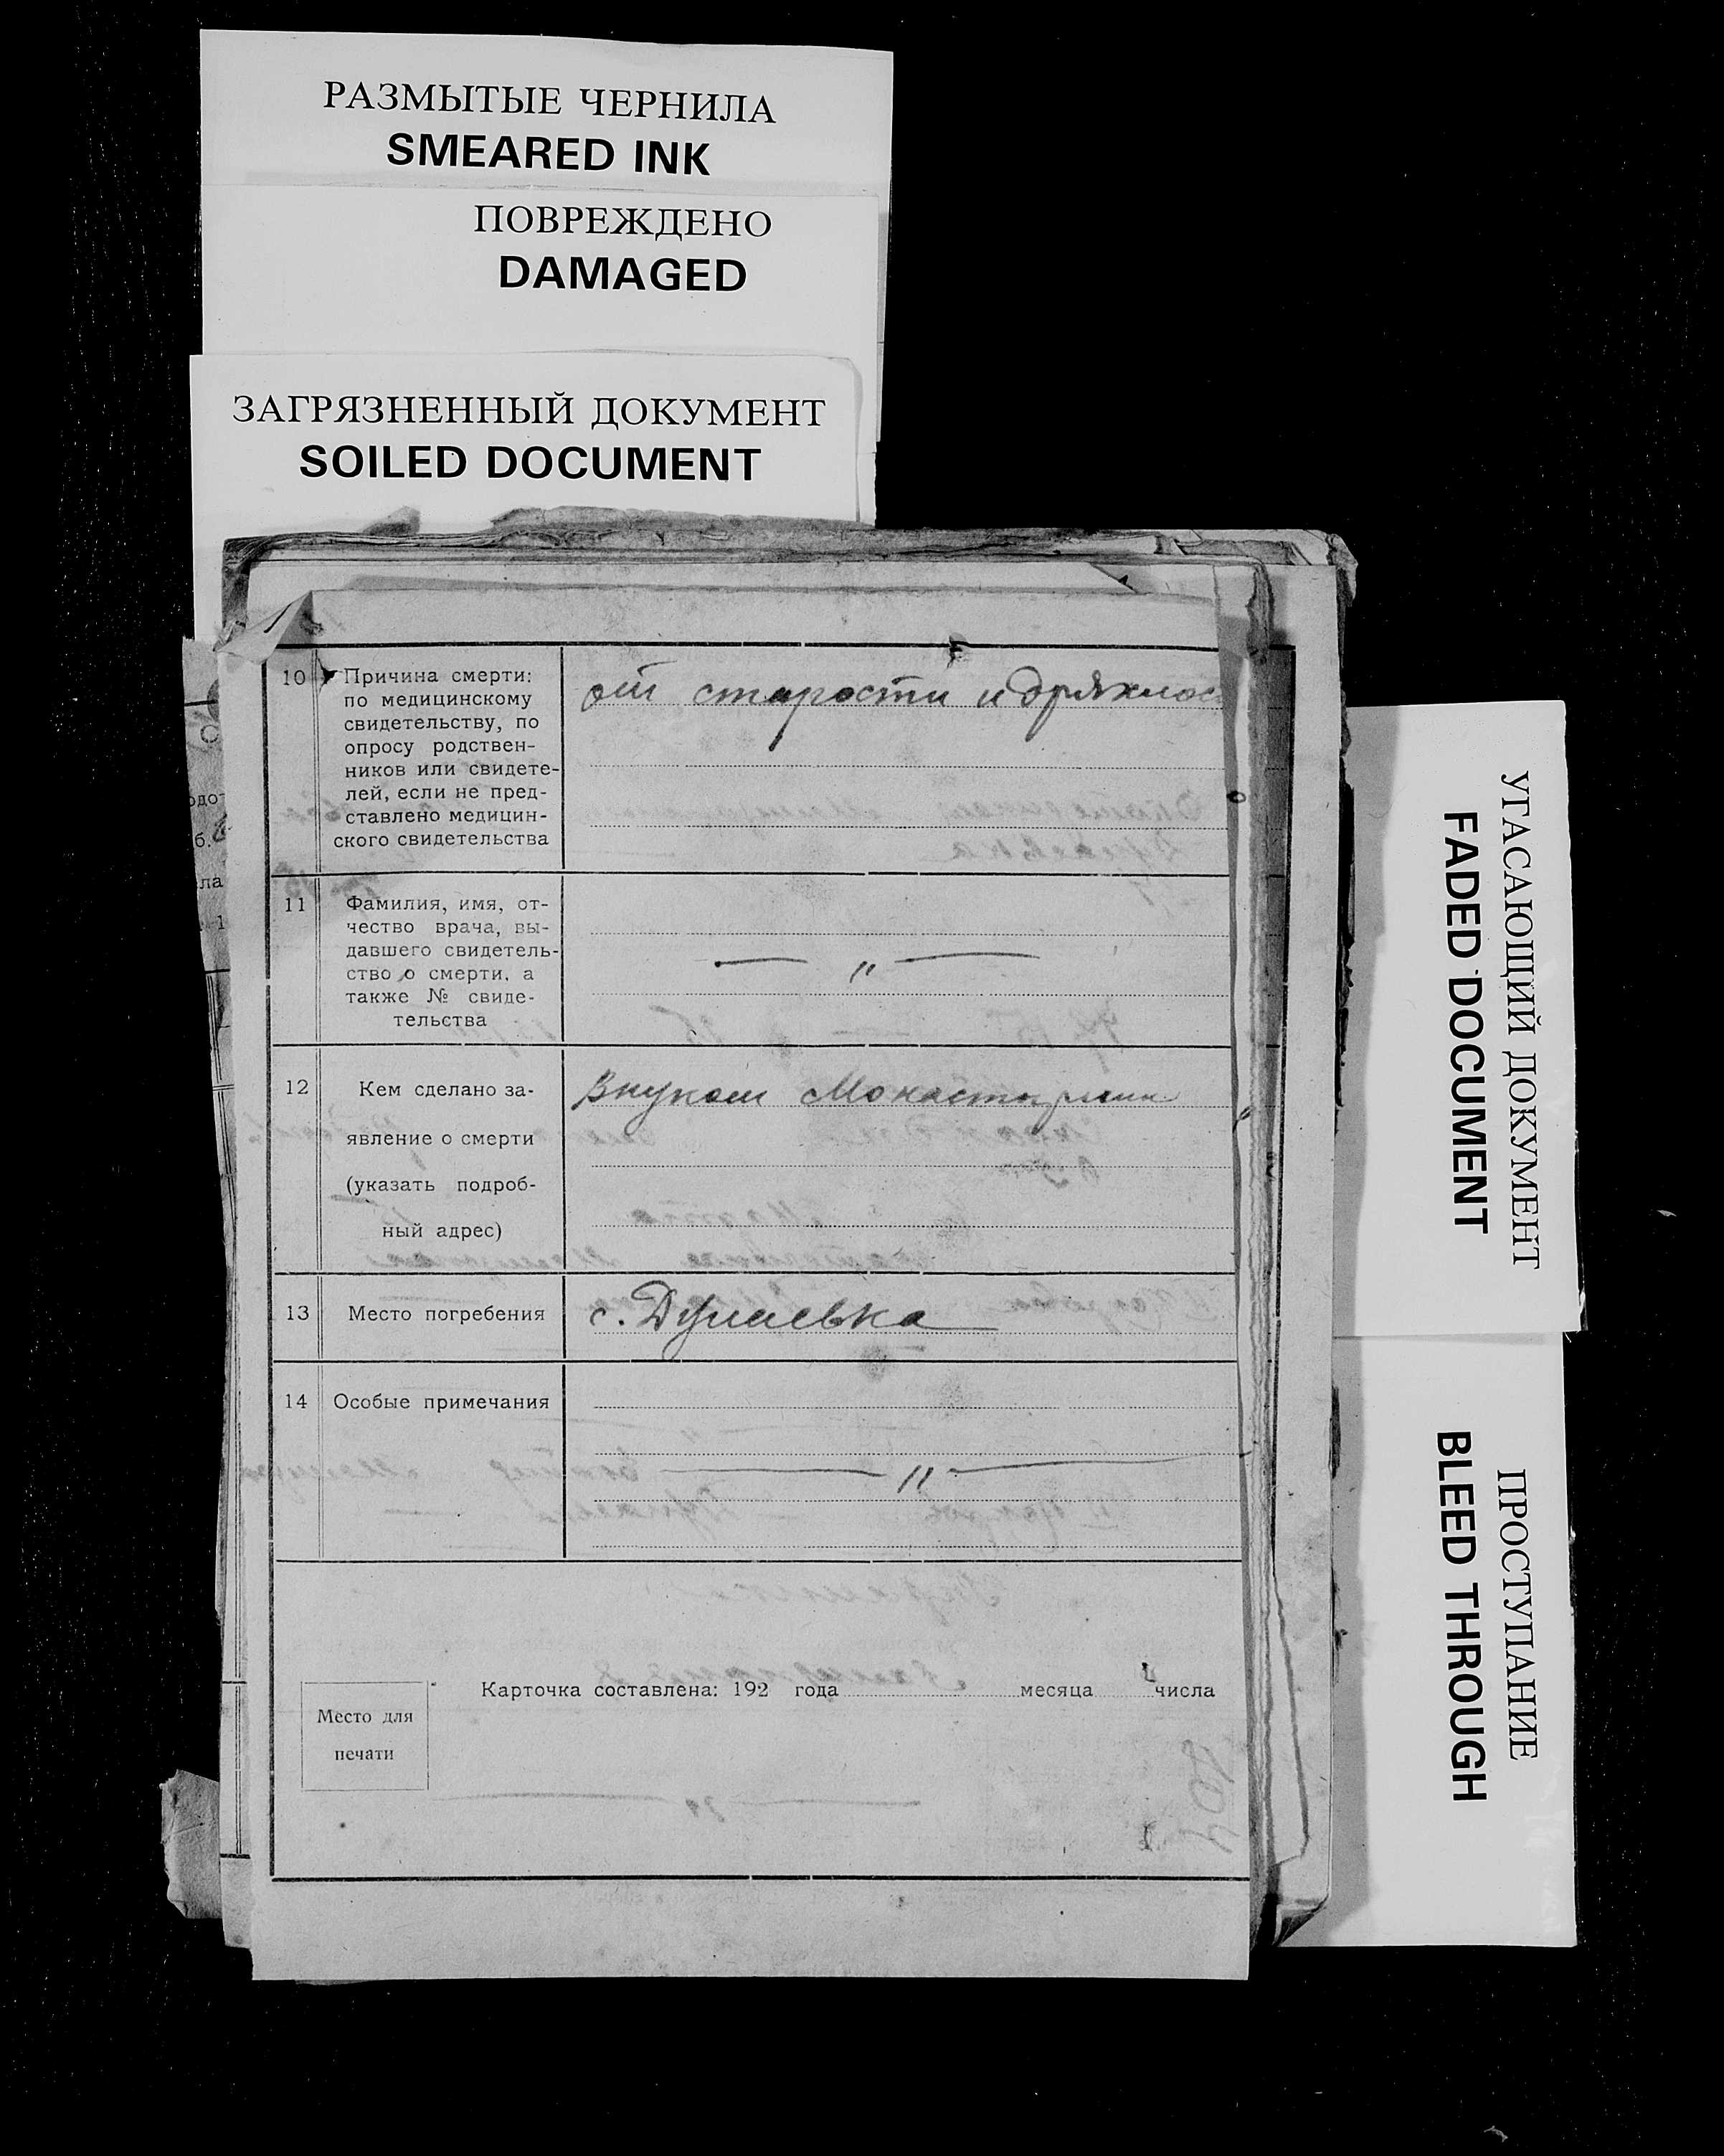 РАЗМЫТЫЕ ЧЕРНИЛА
SMEARED INK
ПОВРЕЖДЕНО
DAMAGED
ЗАГРЯЗНЕННЫЙ ДОКУМЕНТ
SOILED DOCUMENT
10 Причина смерти: от старости и дряхлос
по медицинскому
свидетельству, по
опросу родствен-
ников или свидете-
лей, если не пред-
ставлено медицин-
ского свидетельства
11 Фамилия, имя, от-
чество врача, вы-
давшего свидетель-
ство о смерти, а — " —
также № свиде-
тельства
12 Кем сделано за- Внуком
явление о смерти
(указать подроб-
ный адрес)
13 Место погребения с.
14 Особые примечания
— " —
Карточка составлена: 192 года месяца числа
Место для
печати
УГАСАЮЩИЙ ДОКУМЕНТ
FADED DOCUMENT
ПРОСТУПАНИЕ
BLEED THROUGH